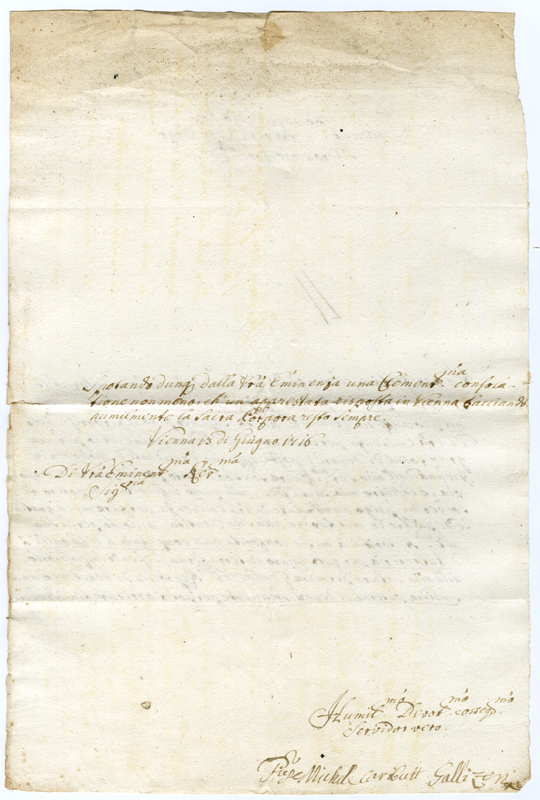 Sperando dunq; dalla Vrã Eminenza una Clement.ma consola-
tione non meno, ch'un aggrestata risposta in Vienna bacciando
humilmente la Sacra Porpora resto sempre.
Vienna 15 di Giugno 1716.
Di Vrã Eminent.ma Rev.ma
Sig.ria
Humil.mo Devot.mo et osseq.mo
Servidor vero.
Michele